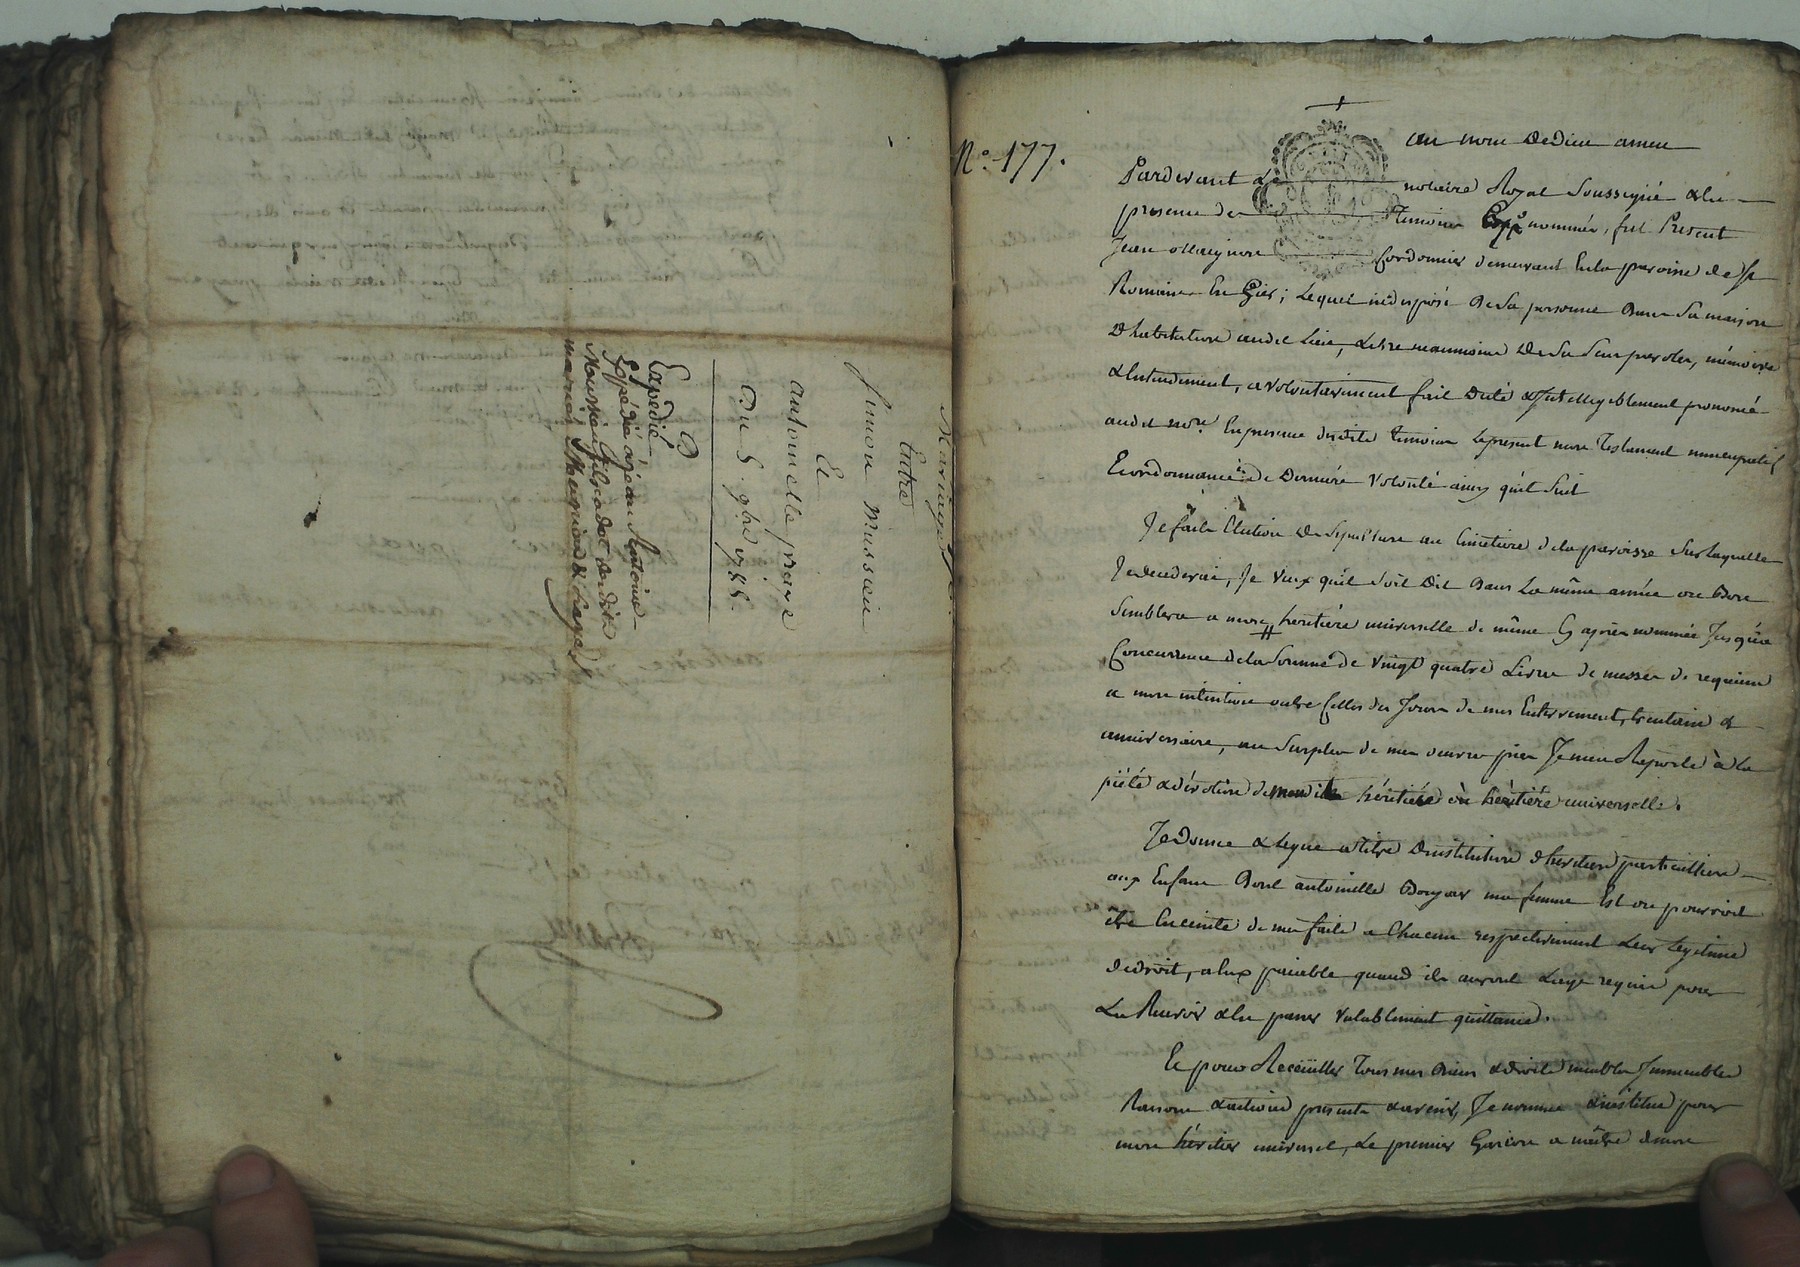 Mariage
Entre
Simon Mussieu
Et
antoinette priere
Du 5. 9bre 1788.
Expedié
Expédié à jean Antoine
N° 177.
au nom de Dieu amen
Pardevant Le notaire Royal Soussigné & En
presence des Temoins nommés, fut Present
Jean Cordonnier demeurant En la paroisse de St
Romain En Gier; Lequel indisposé de Sa personne dans Sa maison
D'habitation audit Lieu, & Libre neanmoins de Ses Sens parolle, mémoire
& Entendement, a volontairement fait Dicté & Intelligiblement prononcé
audit nore. En presence desdits temoins Le present mon Testament nuncupatif
Et ordonnance de Derniére Volonté ainsy qu'il Suit
Je fais Election de Sepulture au Cimetiere de la paroisse Sur Laquelle
Je decederai, Je veux qu'il Soit Dit dans La même année ou Bon
Semblera a mon heritiére universelle de même Cy aprés nommée Jusqu'à
Concurrence de la Somme de vingt quatre Livres de messes de requiem
a mon intention outre Celles des Jours de mes Enterrement, trentain &
anniversaire, au Surplus de mes oeuvres pies Je men Raporte à la
piété & dévotion de héritiére ou héritiére universelle.
Je Donne & Legue a titre d'institution d'heritiers particulliers
aux Enfans Dont antoinette ma femme Est ou pourroit
être Enceinte de mes faits a Chacun respectivement Leur Legitime
de droit, a Eux païable quand ils auront L'age requis pour
La Recevoir & En passer valablement quittance.
Et pour Receüillir Tous mes Biens & droits meubles Immeubles
Raisons & actions presents & avenir, Je nomme & institue pour
mon héritier universel, Le premier Garcon a naître de mon